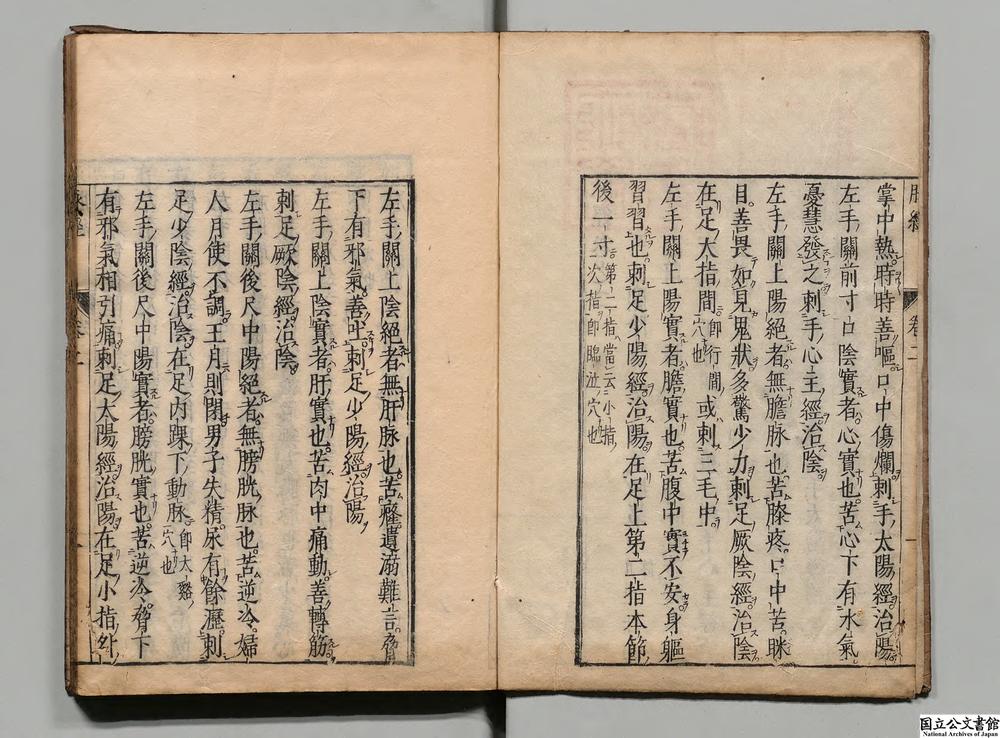 脈經 卷二 一
掌中熱時時善嘔口中傷爛刺手太陽經治陽
左手關前寸口陰實者心實也苦心下有水氣
憂恚發之刺手心主經治陰
左手關上陽絕者無膽脉也苦膝疼口中苦眯
目善畏如見鬼狀多驚少力刺足厥陰經治陰
在足大指間即行間穴也或刺三毛中
左手關上陽實者膽實也苦腹中實不安身軀
習習也刺足少陽經治陽在足上第二指本節
後一寸第二指當云小指次指即臨泣穴也
左手關上陰絕者無肝脉也苦癃遺溺難言脅
下有邪氣善吐刺足少陽經治陽
左手關上陰實者肝實也苦肉中痛動善轉筋
刺足厥陰經治陰
左手關後尺中陽絕者無膀胱脉也苦逆冷婦
人月使不調王月則閉男子失精尿有餘瀝刺
足少陰經治陰在足內踝下動脉即太谿穴也
左手關後尺中陽實者膀胱實也苦逆冷脅下
有邪氣相引痛刺足太陽經治陽在足小指外
脈經 卷二
国立公文書館
National Archives of Japan